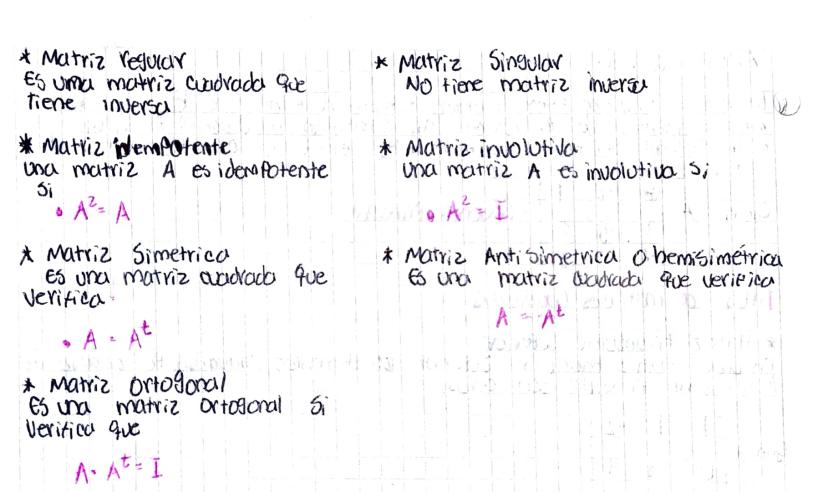 * Matriz regular
Es una matriz cuadrada que
tiene inversa
* Matriz Singular
No tiene matriz inversa
* Matriz idempotente
Una matriz A es idempotente
Si
• A² = A
* Matriz involutiva
Una matriz A es involutiva Si
• A² = I
* Matriz Simetrica
Es una matriz cuadrada que
Verifica
• A = Aᵗ
* Matriz Antisimetrica o hemisimétrica
Es una matriz cuadrada que verifica
A = Aᵗ
* Matriz Ortogonal
Es una matriz Ortogonal Si
Verifica que
A · Aᵗ = I